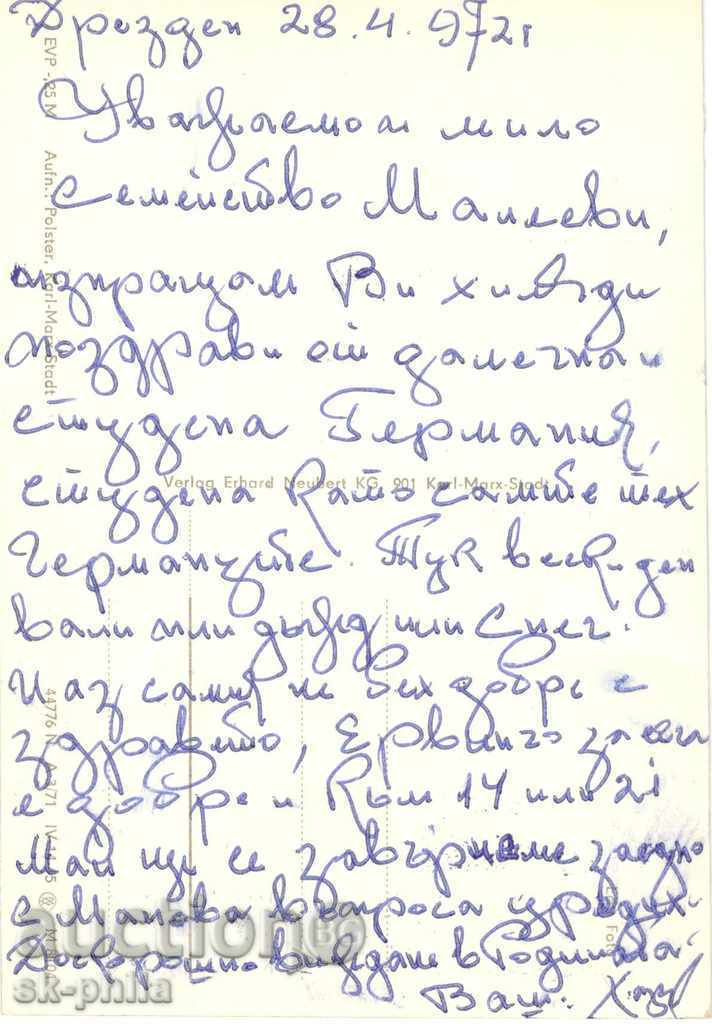 Дрезден 28.4.972г
Уважаемо и мило
семейство Малееви,
изпращам Ви хиляди
поздрави от далечна и
студена Германия,
студена като самите тех
Германците. Тук всеки ден
вали или дъжд или сняг.
И аз самия не бех добре с
здравето, Ервинго за сега
е добре и към 14 или 21
май ще се завърнеме заедно
с Манева въпроса уредих.
Доскорошно виждане в Родината
Ваш:
EVP -,25 M Aufn.: Polster, Karl-Marx-Stadt
Verlag Erhard Neubert KG, 901 Karl-Marx-Stadt
44776 N A 3/71 IV-14-45
Fot
auction.BG
sk-philia